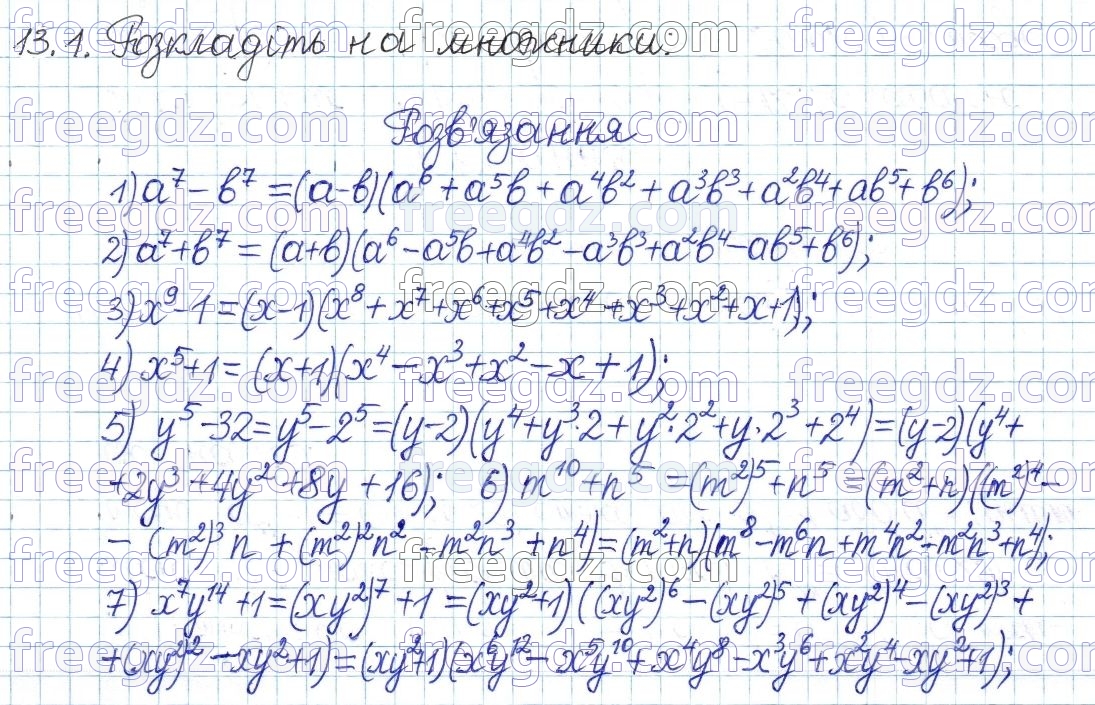 13.1. Розкладіть на множники:
Розв'язання
1) a⁷ - b⁷ = (a-b)(a⁶ + a⁵b + a⁴b² + a³b³ + a²b⁴ + ab⁵ + b⁶);
2) a⁷ + b⁷ = (a+b)(a⁶ - a⁵b + a⁴b² - a³b³ + a²b⁴ - ab⁵ + b⁶);
3) x⁹ - 1 = (x-1)(x⁸ + x⁷ + x⁶ + x⁵ + x⁴ + x³ + x² + x + 1);
4) x⁵ + 1 = (x+1)(x⁴ - x³ + x² - x + 1);
5) y⁵ - 32 = y⁵ - 2⁵ = (y-2)(y⁴ + y³·2 + y²·2² + y·2³ + 2⁴) = (y-2)(y⁴ +
+ 2y³ + 4y² + 8y + 16); 6) m¹⁰ + n⁵ = (m²)⁵ + n⁵ = (m² + n)((m²)⁴ -
- (m²)³n + (m²)²n² - m²n³ + n⁴) = (m² + n)(m⁸ - m⁶n + m⁴n² - m²n³ + n⁴);
7) x⁷y¹⁴ + 1 = (xy²)⁷ + 1 = (xy² + 1)((xy²)⁶ - (xy²)⁵ + (xy²)⁴ - (xy²)³ +
+ (xy²)² - xy² + 1) = (xy² + 1)(x⁶y¹² - x⁵y¹⁰ + x⁴y⁸ - x³y⁶ + x²y⁴ - xy² + 1);
freegdz.com